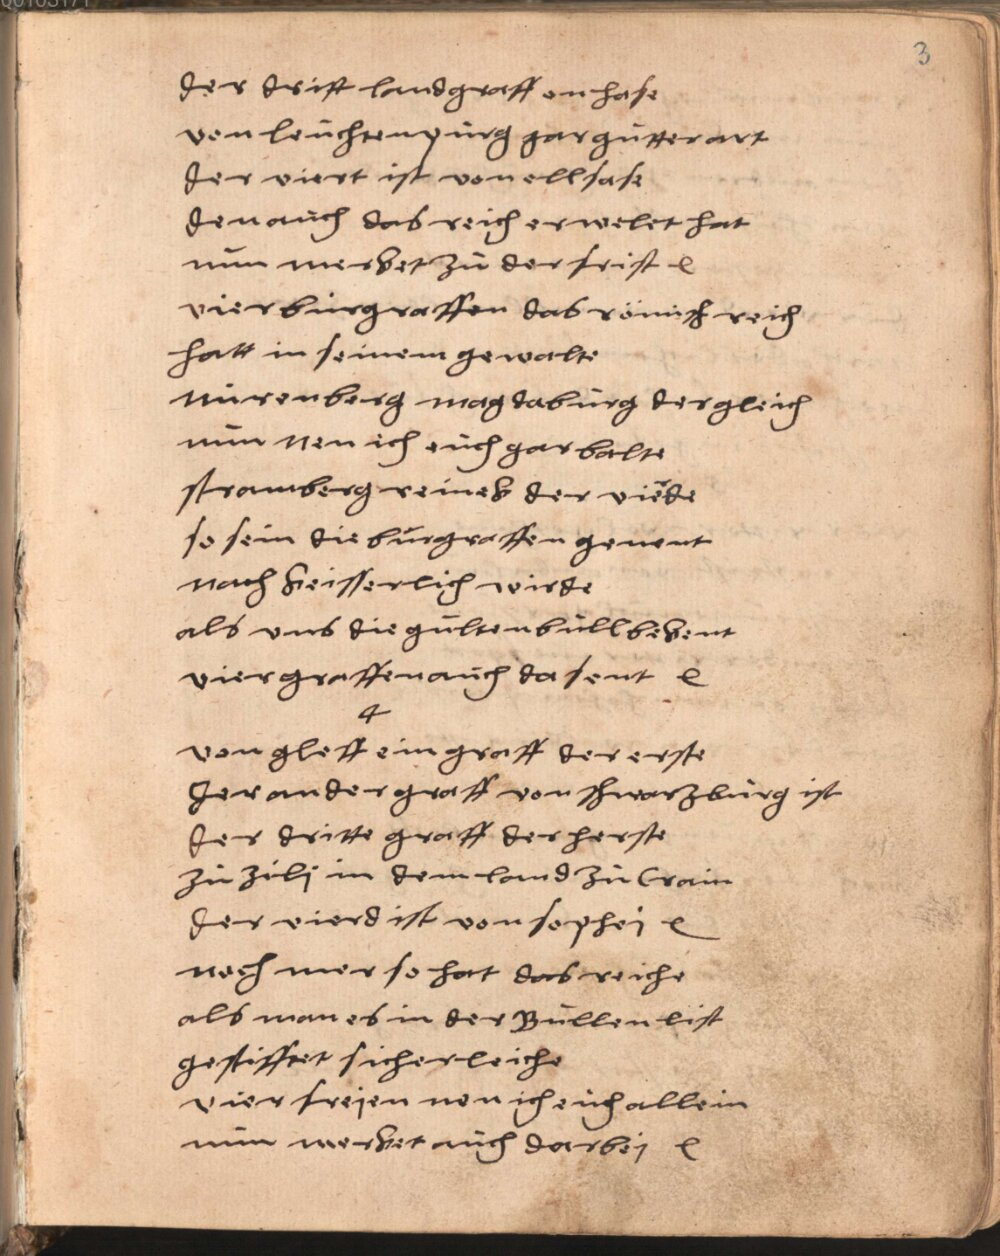 3
der drit landgraff on hase
von leuchtenpurg gar gutter art
der viert ist von ellsase
den auch das reich erwelet hat
nun merket zu der frist
vier burgraffen das römisch reich
hatt in seinem gewalte
nurenberg magdaburg dergleich
nun nen ich euch gar balte
stramberg reinek der vierde
so sein die burgraffen genent
nach keisserlich wirde
als vns die gulten bull bekent
vier graffen auch da sent
4
von gleff ein graff der erste
der ander graff von schwarzburg ist
der dritte graff der herste
zu Zili in dem land zu Crain
der vierd ist von sophej
noch mer so hat das reiche
als man es in der Bullen list
gestifftet sicherleiche
vier freien nen ich euch allein
nun merket auch darbej